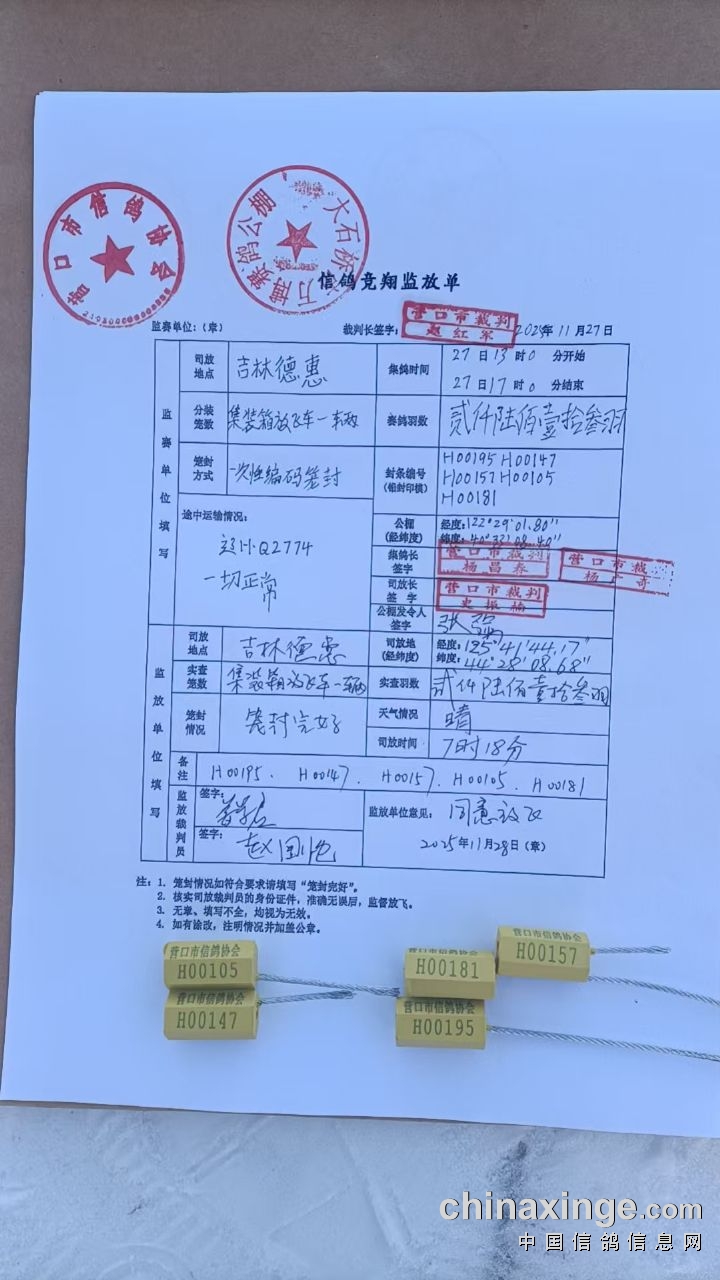 营口市信鸽协会
大石桥
万博赛鸽公棚
信鸽竞翔监放单
监赛单位:(章)
裁判长签字:
营口市裁判
赵红军
2025年11月27日
监赛单位填写
司放地点
吉林德惠
集鸽时间
27日13时0分开始
27日17时0分结束
分装笼数
集装箱放飞车一车两
赛鸽羽数
贰仟陆佰壹拾叁羽
笼封方式
一次性编码笼封
封条编号(铅封印模)
H00195 H00147
H00157 H00105
H00181
途中运输情况:
Q2774
一切正常
公棚(经纬度)
经度:122°29'01.80"
纬度:40°32'08.40"
集鸽长签字
营口市裁判
杨昌春
营口市裁
司放长签字
营口市裁判
史振楠
公棚发令人签字
张
监放单位填写
司放地点
吉林德惠
司放地(经纬度)
经度:125°41'44.17"
纬度:44°28'08.68"
实查笼数
集装箱放飞车一车两
实查羽数
贰仟陆佰壹拾叁羽
笼封情况
笼封完好
天气情况
晴
司放时间
7时18分
备注
H00195. H00147. H00157. H00105. H00181
监放裁判员
签字:
签字:
赵国
监放单位意见:
同意放飞
2025年11月28日(章)
注: 1. 笼封情况如符合要求请填写“笼封完好”。
2. 核实司放裁判员的身份证件,准确无误后,监督放飞。
3. 无章、填写不全,均视为无效。
4. 如有涂改,注明情况并加盖公章。
营口市信鸽协会
H00105
营口市信鸽协会
H00147
营口市信鸽协会
H00181
营口市信鸽协会
H00195
营口市信鸽协会
H00157
chinaxinge.com
中国信鸽信息网